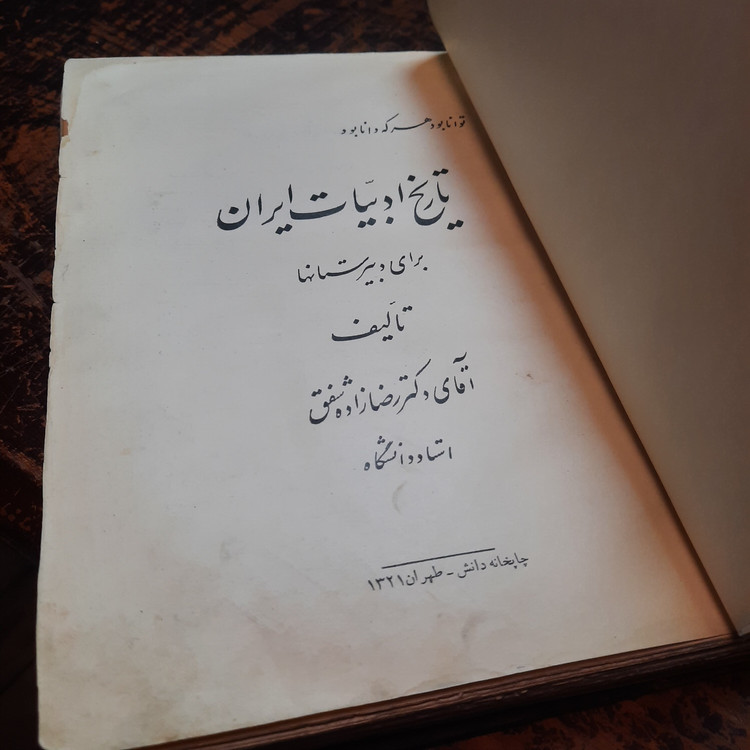 توانا بود هر که دانا بود
تاریخ ادبیّات ایران
برای دبیرستانها
تألیف
آقای دکتر رضازاده شفق
استاد دانشگاه
چاپخانه دانش - طهران ۱۳۲۱